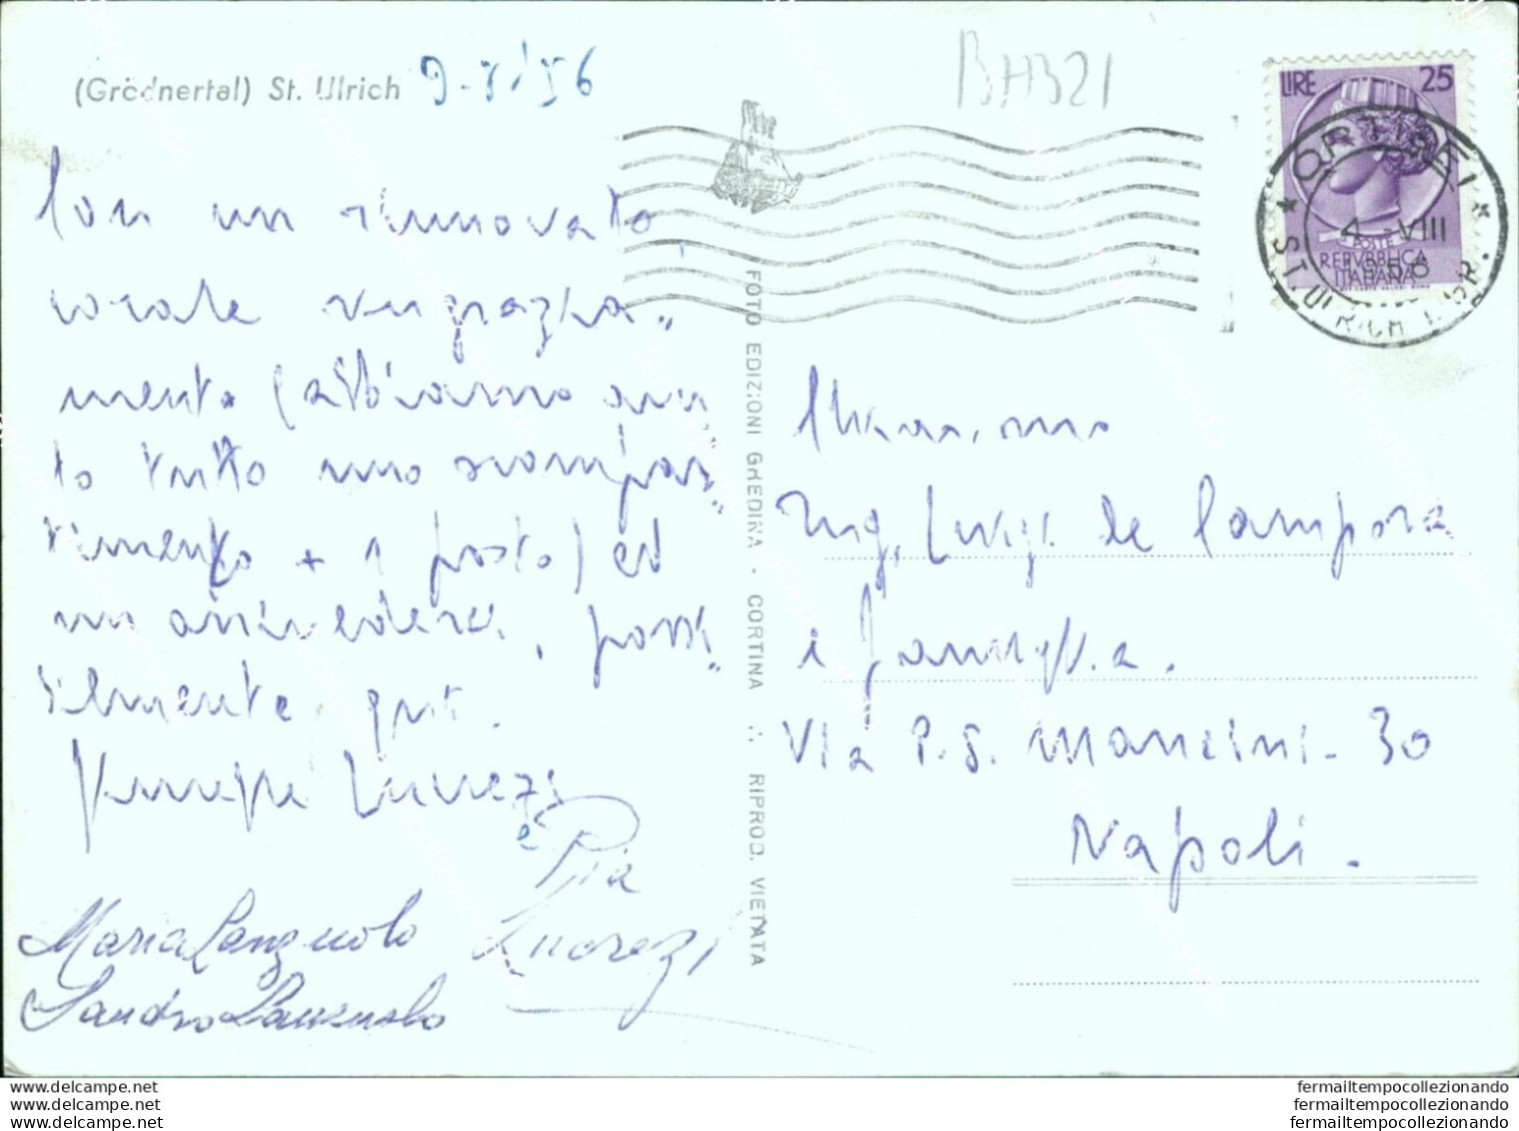 (Grödnertal) St. Ulrich
BH321
LIRE 25
POSTE
REPVBBLICA
ITALIANA
★ ORTISEI ★
4 - VIII
Con un rinnovato
corale ringrazia„
mento (abbiamo avu
to tutto uno scompar„
timento + 1 posto) ed
un arrivederci, possi„
bilmente qui.
Giuseppe Lucrezi
e Pia
Lucrezi
Maria Lanzuolo
Sandro Lanzuolo
FOTO EDIZIONI GHEDINA - CORTINA ∴ RIPROD. VIETATA
Ing. Luigi de Campora
e famiglia.
Via P.S. Mancini - 30
Napoli.
delcampe.net
www.delcampe.net
www.delcampe.net
fermailtempocollezionando
fermailtempocollezionando
fermailtempocollezionando